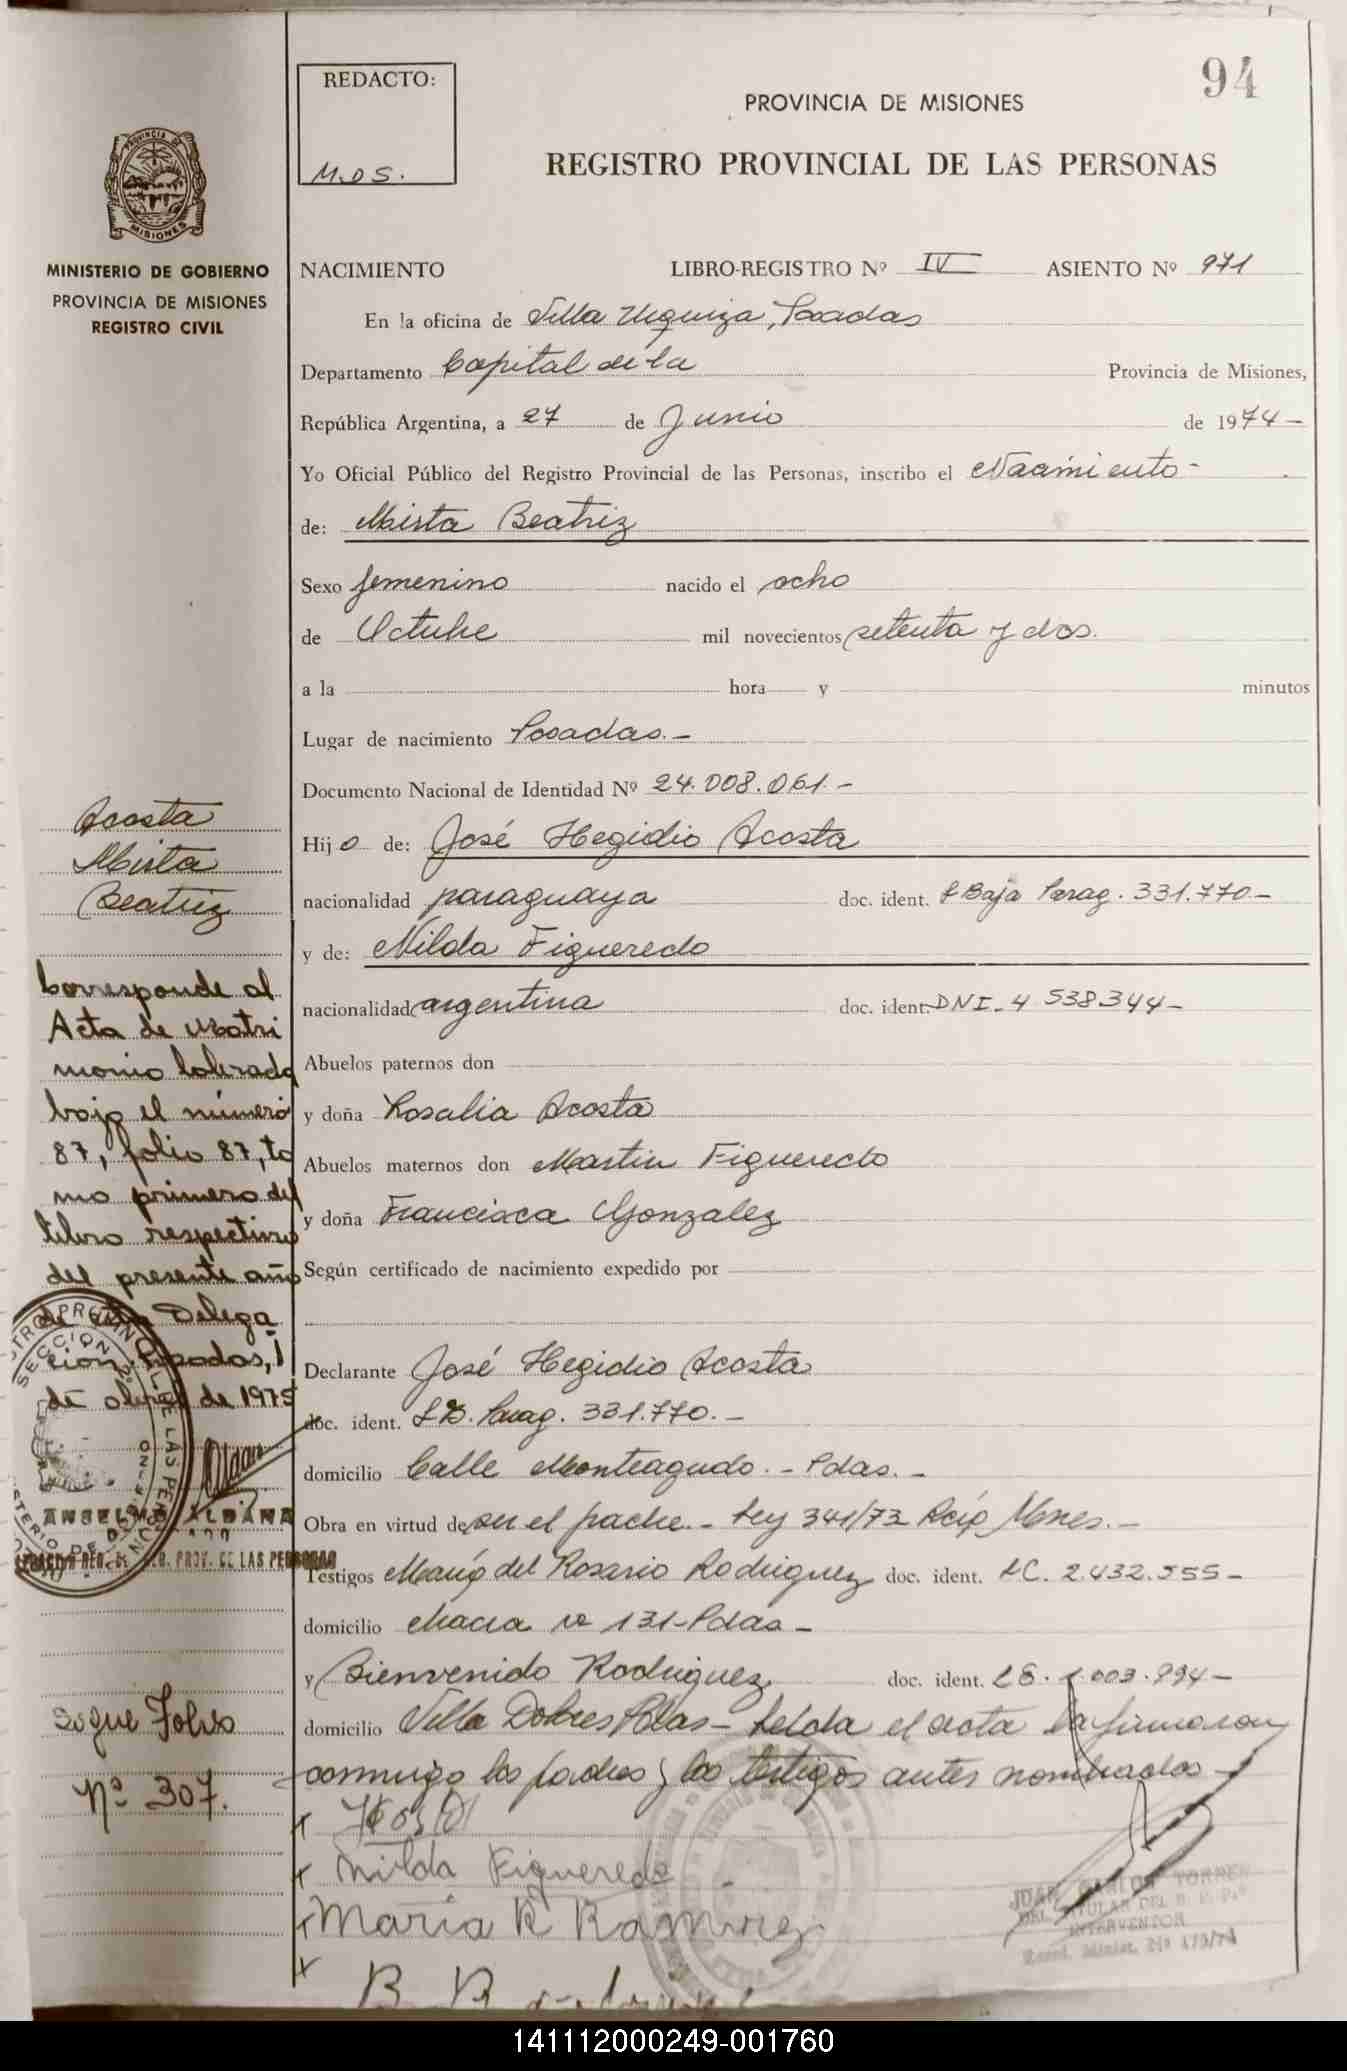 94
REDACTO:
M.D.S.
PROVINCIA DE MISIONES
REGISTRO PROVINCIAL DE LAS PERSONAS
PROVINCIA DE
MISIONES
MINISTERIO DE GOBIERNO
PROVINCIA DE MISIONES
REGISTRO CIVIL
NACIMIENTO LIBRO-REGISTRO Nº IV ASIENTO Nº 971
En la oficina de Villa Urquiza, Posadas
Departamento Capital de la Provincia de Misiones,
República Argentina, a 27 de Junio de 1974-
Yo Oficial Público del Registro Provincial de las Personas, inscribo el Nacimiento-
de: Mirta Beatriz
Sexo femenino nacido el ocho
de Octubre mil novecientos setenta y dos.
a la hora y minutos
Lugar de nacimiento Posadas.-
Documento Nacional de Identidad Nº 24.008.061.-
Hij o de: José Hegidio Acosta
nacionalidad paraguaya doc. ident. Baja Parag. 331.770-
y de: Nilda Figueredo
nacionalidad argentina doc. ident. DNI. 4 538344-
Abuelos paternos don
y doña Rosalia Acosta
Abuelos maternos don Martin Figueredo
y doña Francisca Gonzalez
Según certificado de nacimiento expedido por
Declarante José Hegidio Acosta
doc. ident. Parag. 331.770.-
domicilio Calle Monteagudo.- Pdas.-
Obra en virtud de ser el padre.- Ley 341/73
Testigos María del Rosario Rodriguez doc. ident. LC. 2.432.555-
domicilio Chacra nº 131-Pdas-
y Bienvenido Rodriguez doc. ident. 1.003.994-
domicilio Villa Dolores Pdas- Leida el acta la firmaron
conmigo los padres y los testigos antes nombrados-
Nilda Figueredo
María R Ramirez
JUAN CARLOS TORRES
DEL. TITULAR DEL R. P. P.
INTERVENTOR
Resol. Minist. Nº 173/74
Acosta
Mirta
Beatriz
Corresponde al
Acta de Matri
monio labrada
bajo el número
87, folio 87, to
mo primero del
libro respectivo
del presente año
de esta Delega
ción. Posadas, 1
de abril de 1975
ANSELMO ALDANA
REG. PROV. DE LAS PERSONAS
Sigue Folio
Nº 307.
141112000249-001760